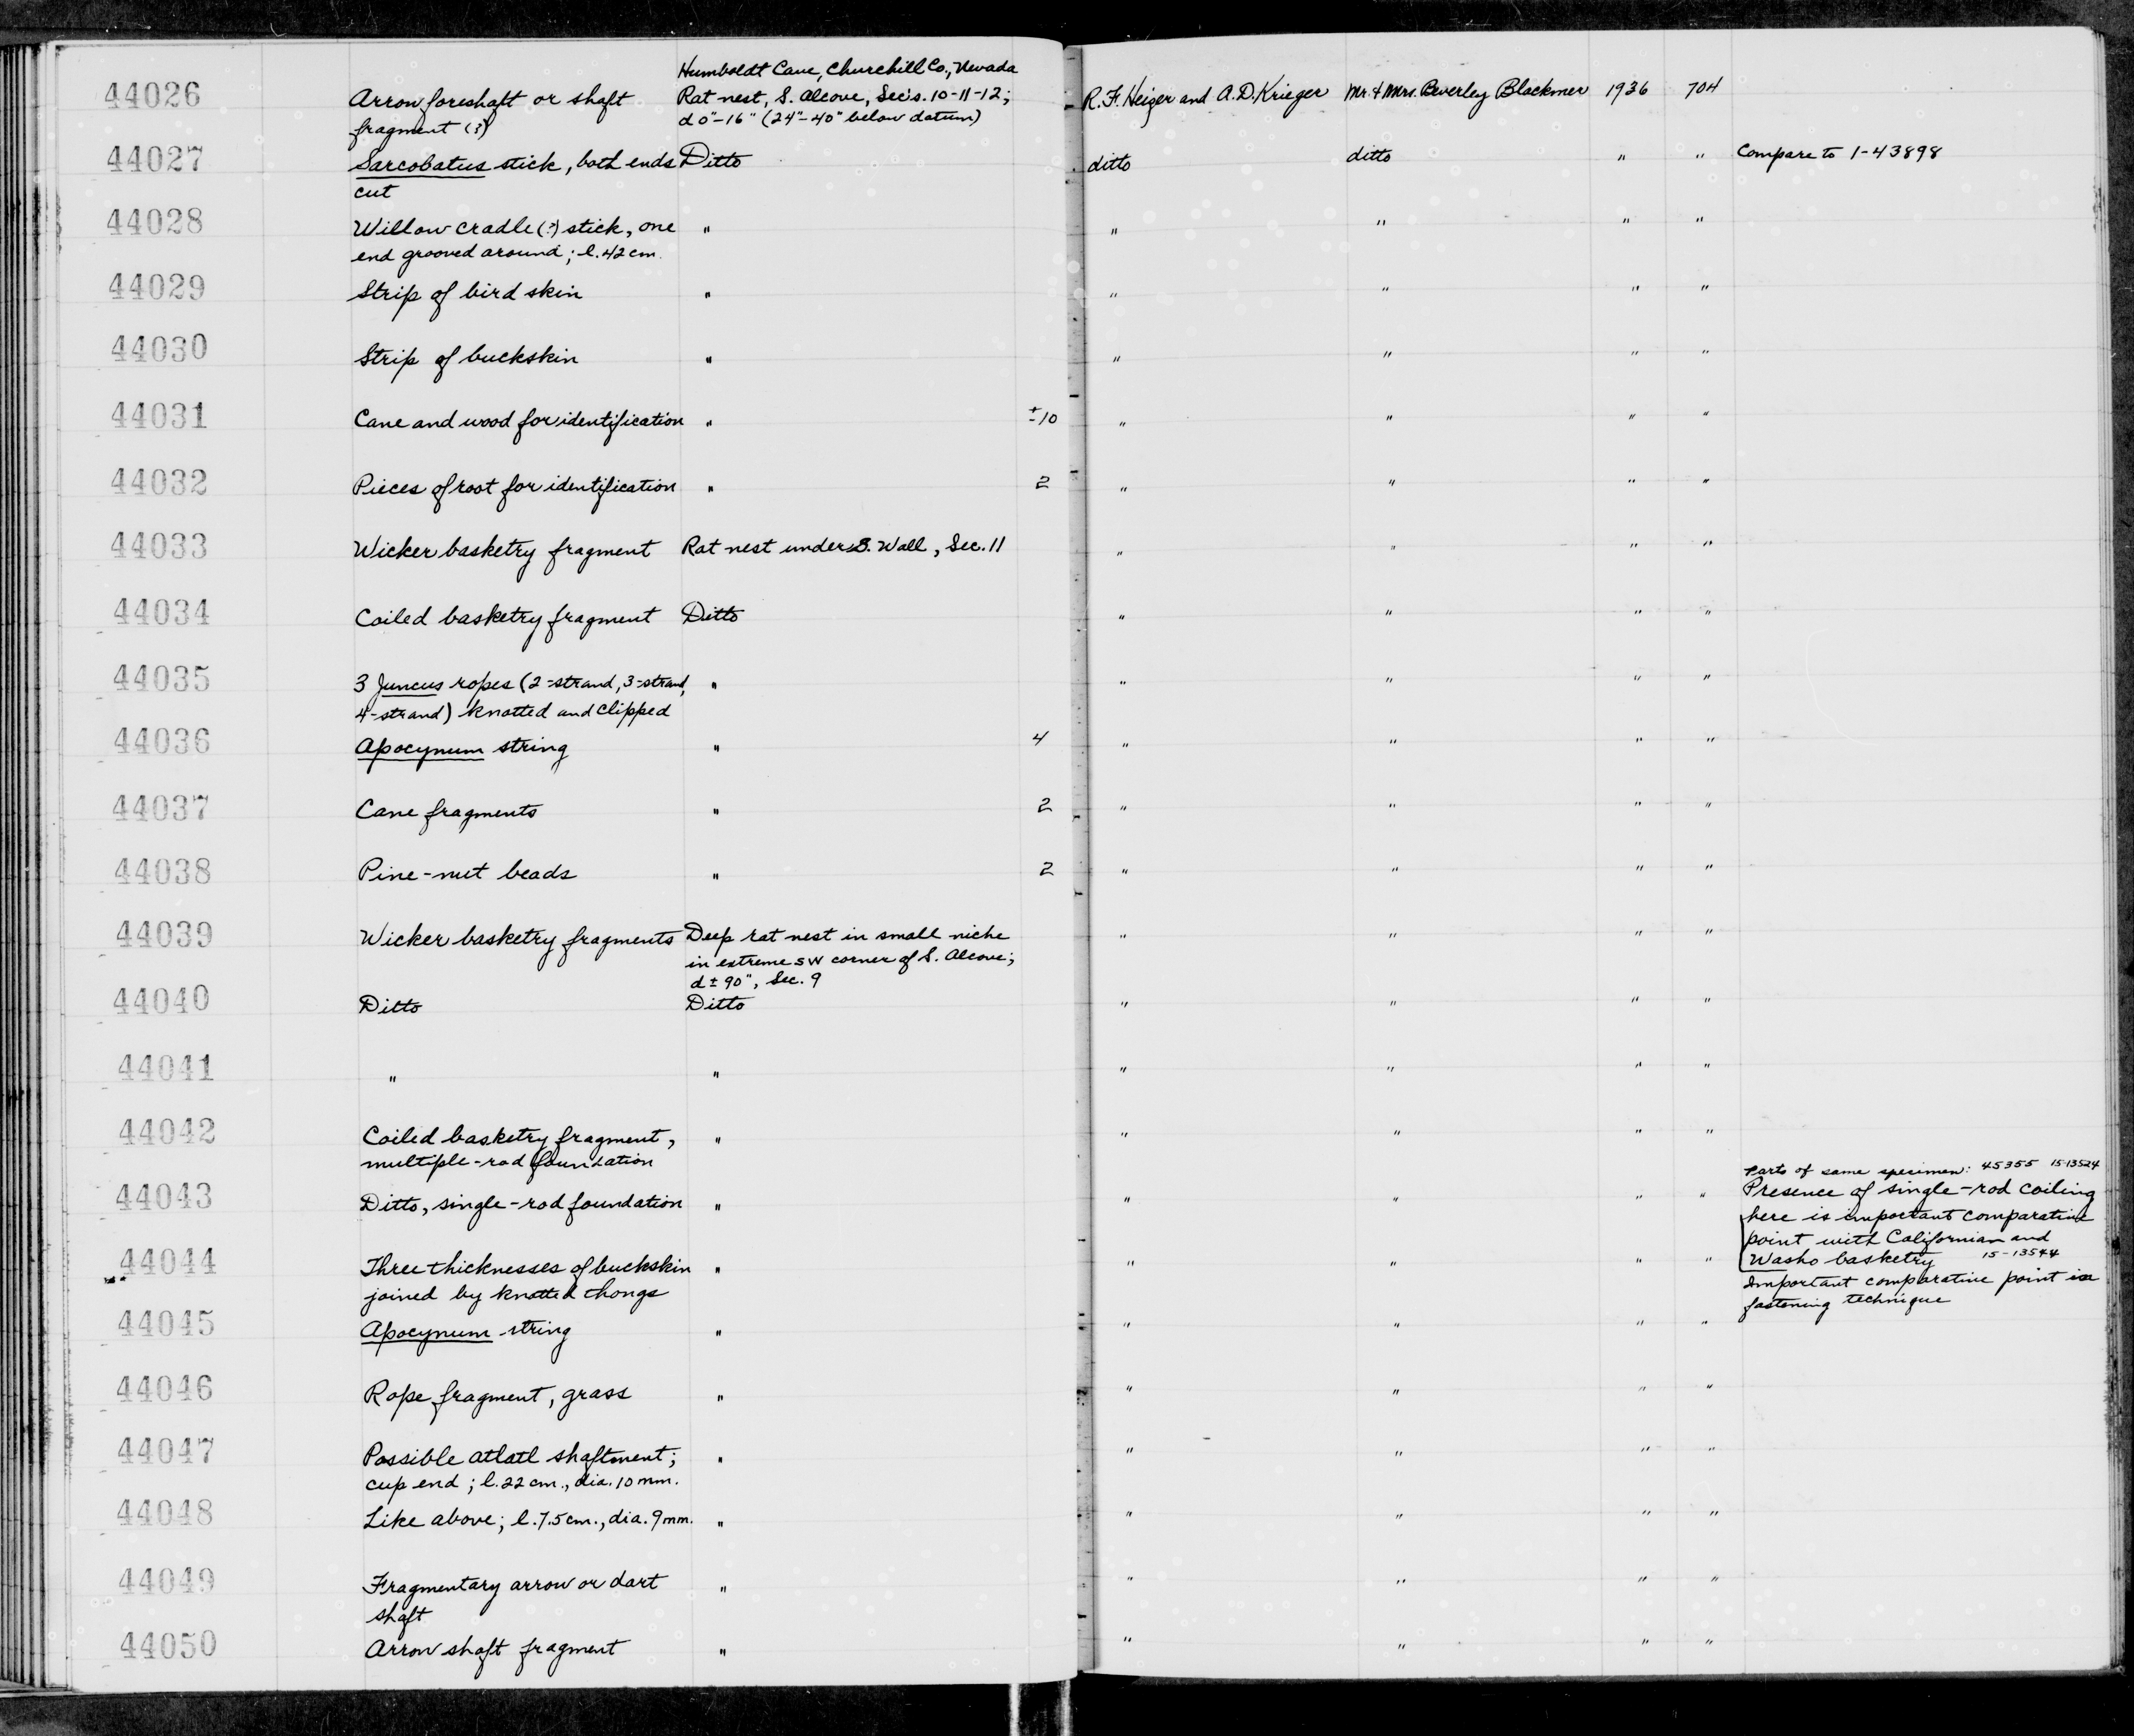 Humboldt Cave, Churchill Co., Nevada
44026 Arrow foreshaft or shaft Rat nest, S. Alcove, Sec's. 10-11-12; R. F. Heizer and A. D. Krieger Mr. & Mrs. Beverley Blackmer 1936 704
fragment (?) d 0"-16" (24"-40" below datum)
44027 Sarcobatus stick, both ends Ditto ditto ditto " " Compare to 1-43898
cut
44028 Willow cradle (?) stick, one " " " " "
end grooved around; l. 42 cm.
44029 Strip of bird skin " " " " "
44030 Strip of buckskin " " " " "
44031 Cane and wood for identification " ±10 " " " "
44032 Pieces of root for identification " 2 " " " "
44033 Wicker basketry fragment Rat nest under S. Wall, Sec. 11 " " " "
44034 Coiled basketry fragment Ditto " " " "
44035 3 Juncus ropes (2-strand, 3-strand, " " " " "
4-strand) knotted and clipped
44036 Apocynum string " 4 " " " "
44037 Cane fragments " 2 " " " "
44038 Pine-nut beads " 2 " " " "
44039 Wicker basketry fragments Deep rat nest in small niche " " " "
in extreme SW corner of S. Alcove;
d ± 90", Sec. 9
44040 Ditto Ditto " " " "
44041 " " " " " "
44042 Coiled basketry fragment, " " " " "
multiple-rod foundation
Parts of same specimen: 45355 15-13524
44043 Ditto, single-rod foundation " " " " " Presence of single-rod coiling
here is important comparative
point with Californian and
44044 Three thicknesses of buckskin " " " " " Washo basketry 15-13544
joined by knotted thongs Important comparative point in
fastening technique
44045 Apocynum string " " " " "
44046 Rope fragment, grass " " " " "
44047 Possible atlatl shaftment; " " " " "
cup end; l. 22 cm., dia. 10 mm.
44048 Like above; l. 7.5 cm., dia. 9 mm. " " " " "
44049 Fragmentary arrow or dart " " " " "
shaft
44050 Arrow shaft fragment " " " " "